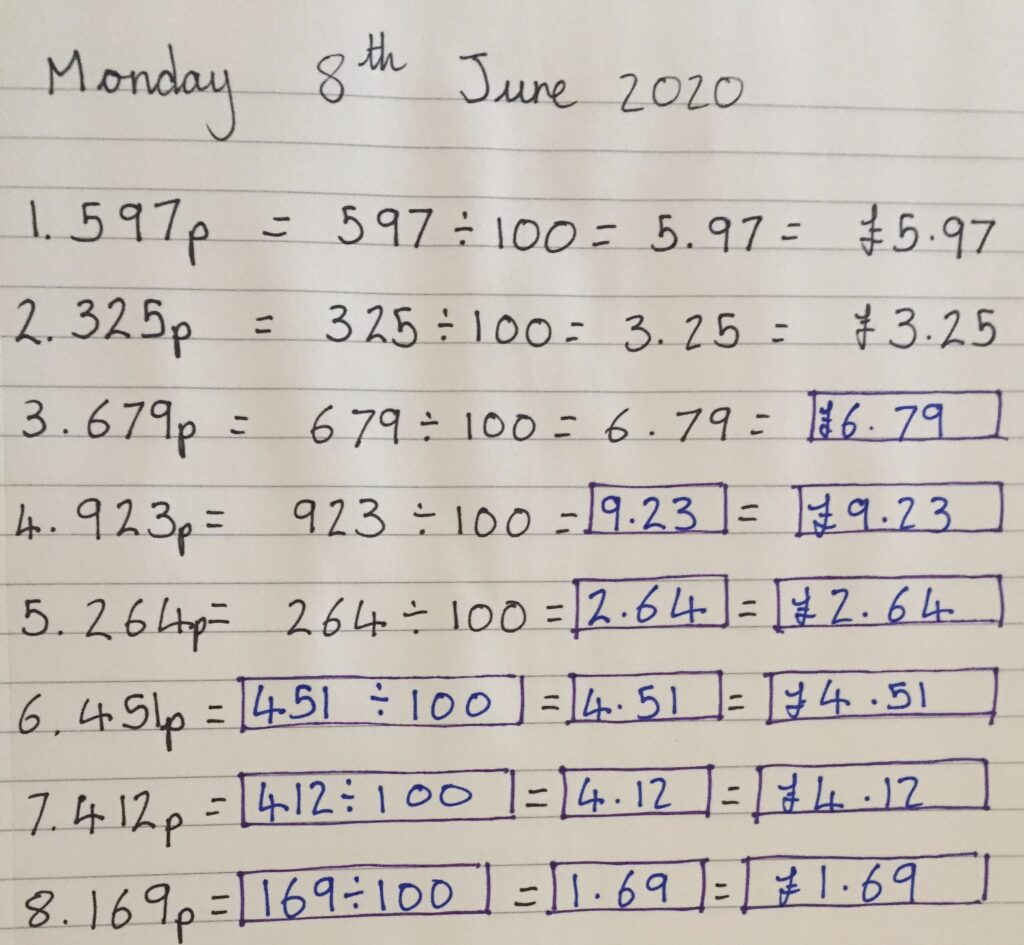 Monday 8th June 2020
1. 597p = 597 ÷ 100 = 5.97 = £5.97
2. 325p = 325 ÷ 100 = 3.25 = £3.25
3. 679p = 679 ÷ 100 = 6.79 = £6.79
4. 923p = 923 ÷ 100 = 9.23 = £9.23
5. 264p = 264 ÷ 100 = 2.64 = £2.64
6. 451p = 451 ÷ 100 = 4.51 = £4.51
7. 412p = 412 ÷ 100 = 4.12 = £4.12
8. 169p = 169 ÷ 100 = 1.69 = £1.69